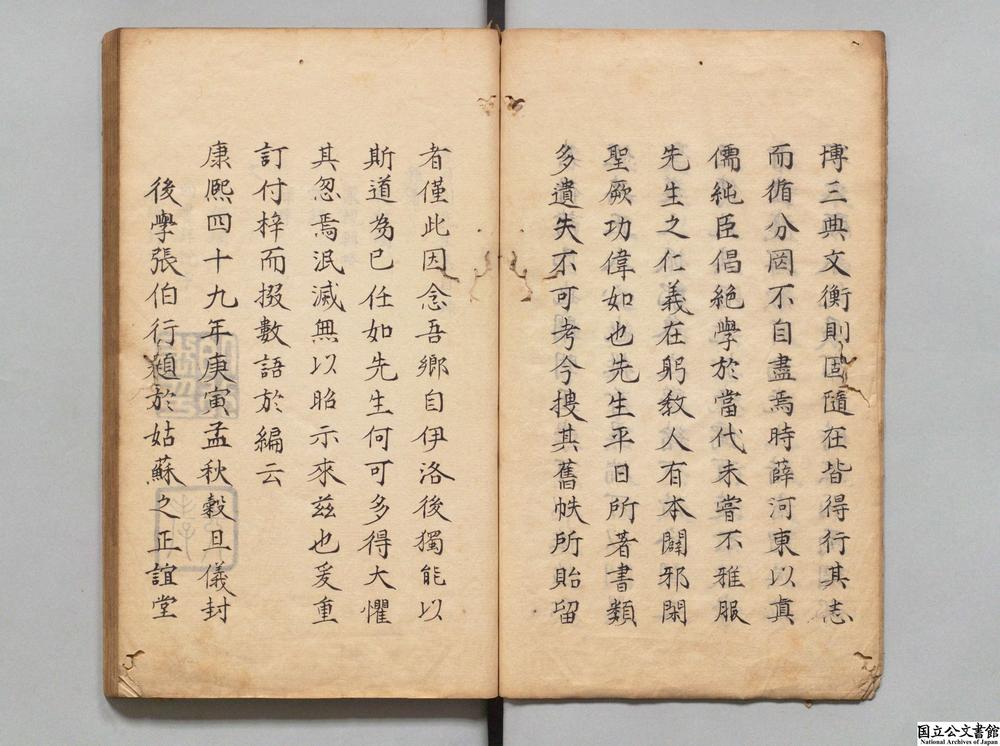 博三典文衡則固隨在皆得行其志
而循分罔不自盡焉時薛河東以真
儒純臣倡絕學於當代未嘗不雅服
先生之仁義在躬敎人有本闢邪閑
聖厥功偉如也先生平日所著書類
多遺失不可考今搜其舊帙所貽留
者僅此因念吾鄉自伊洛後獨能以
斯道為已任如先生何可多得大懼
其忽焉泯滅無以昭示來兹也爰重
訂付梓而掇數語於編云
康熙四十九年庚寅孟秋穀旦儀封
後學張伯行題於姑蘇之正誼堂
国立公文書館
National Archives of Japan